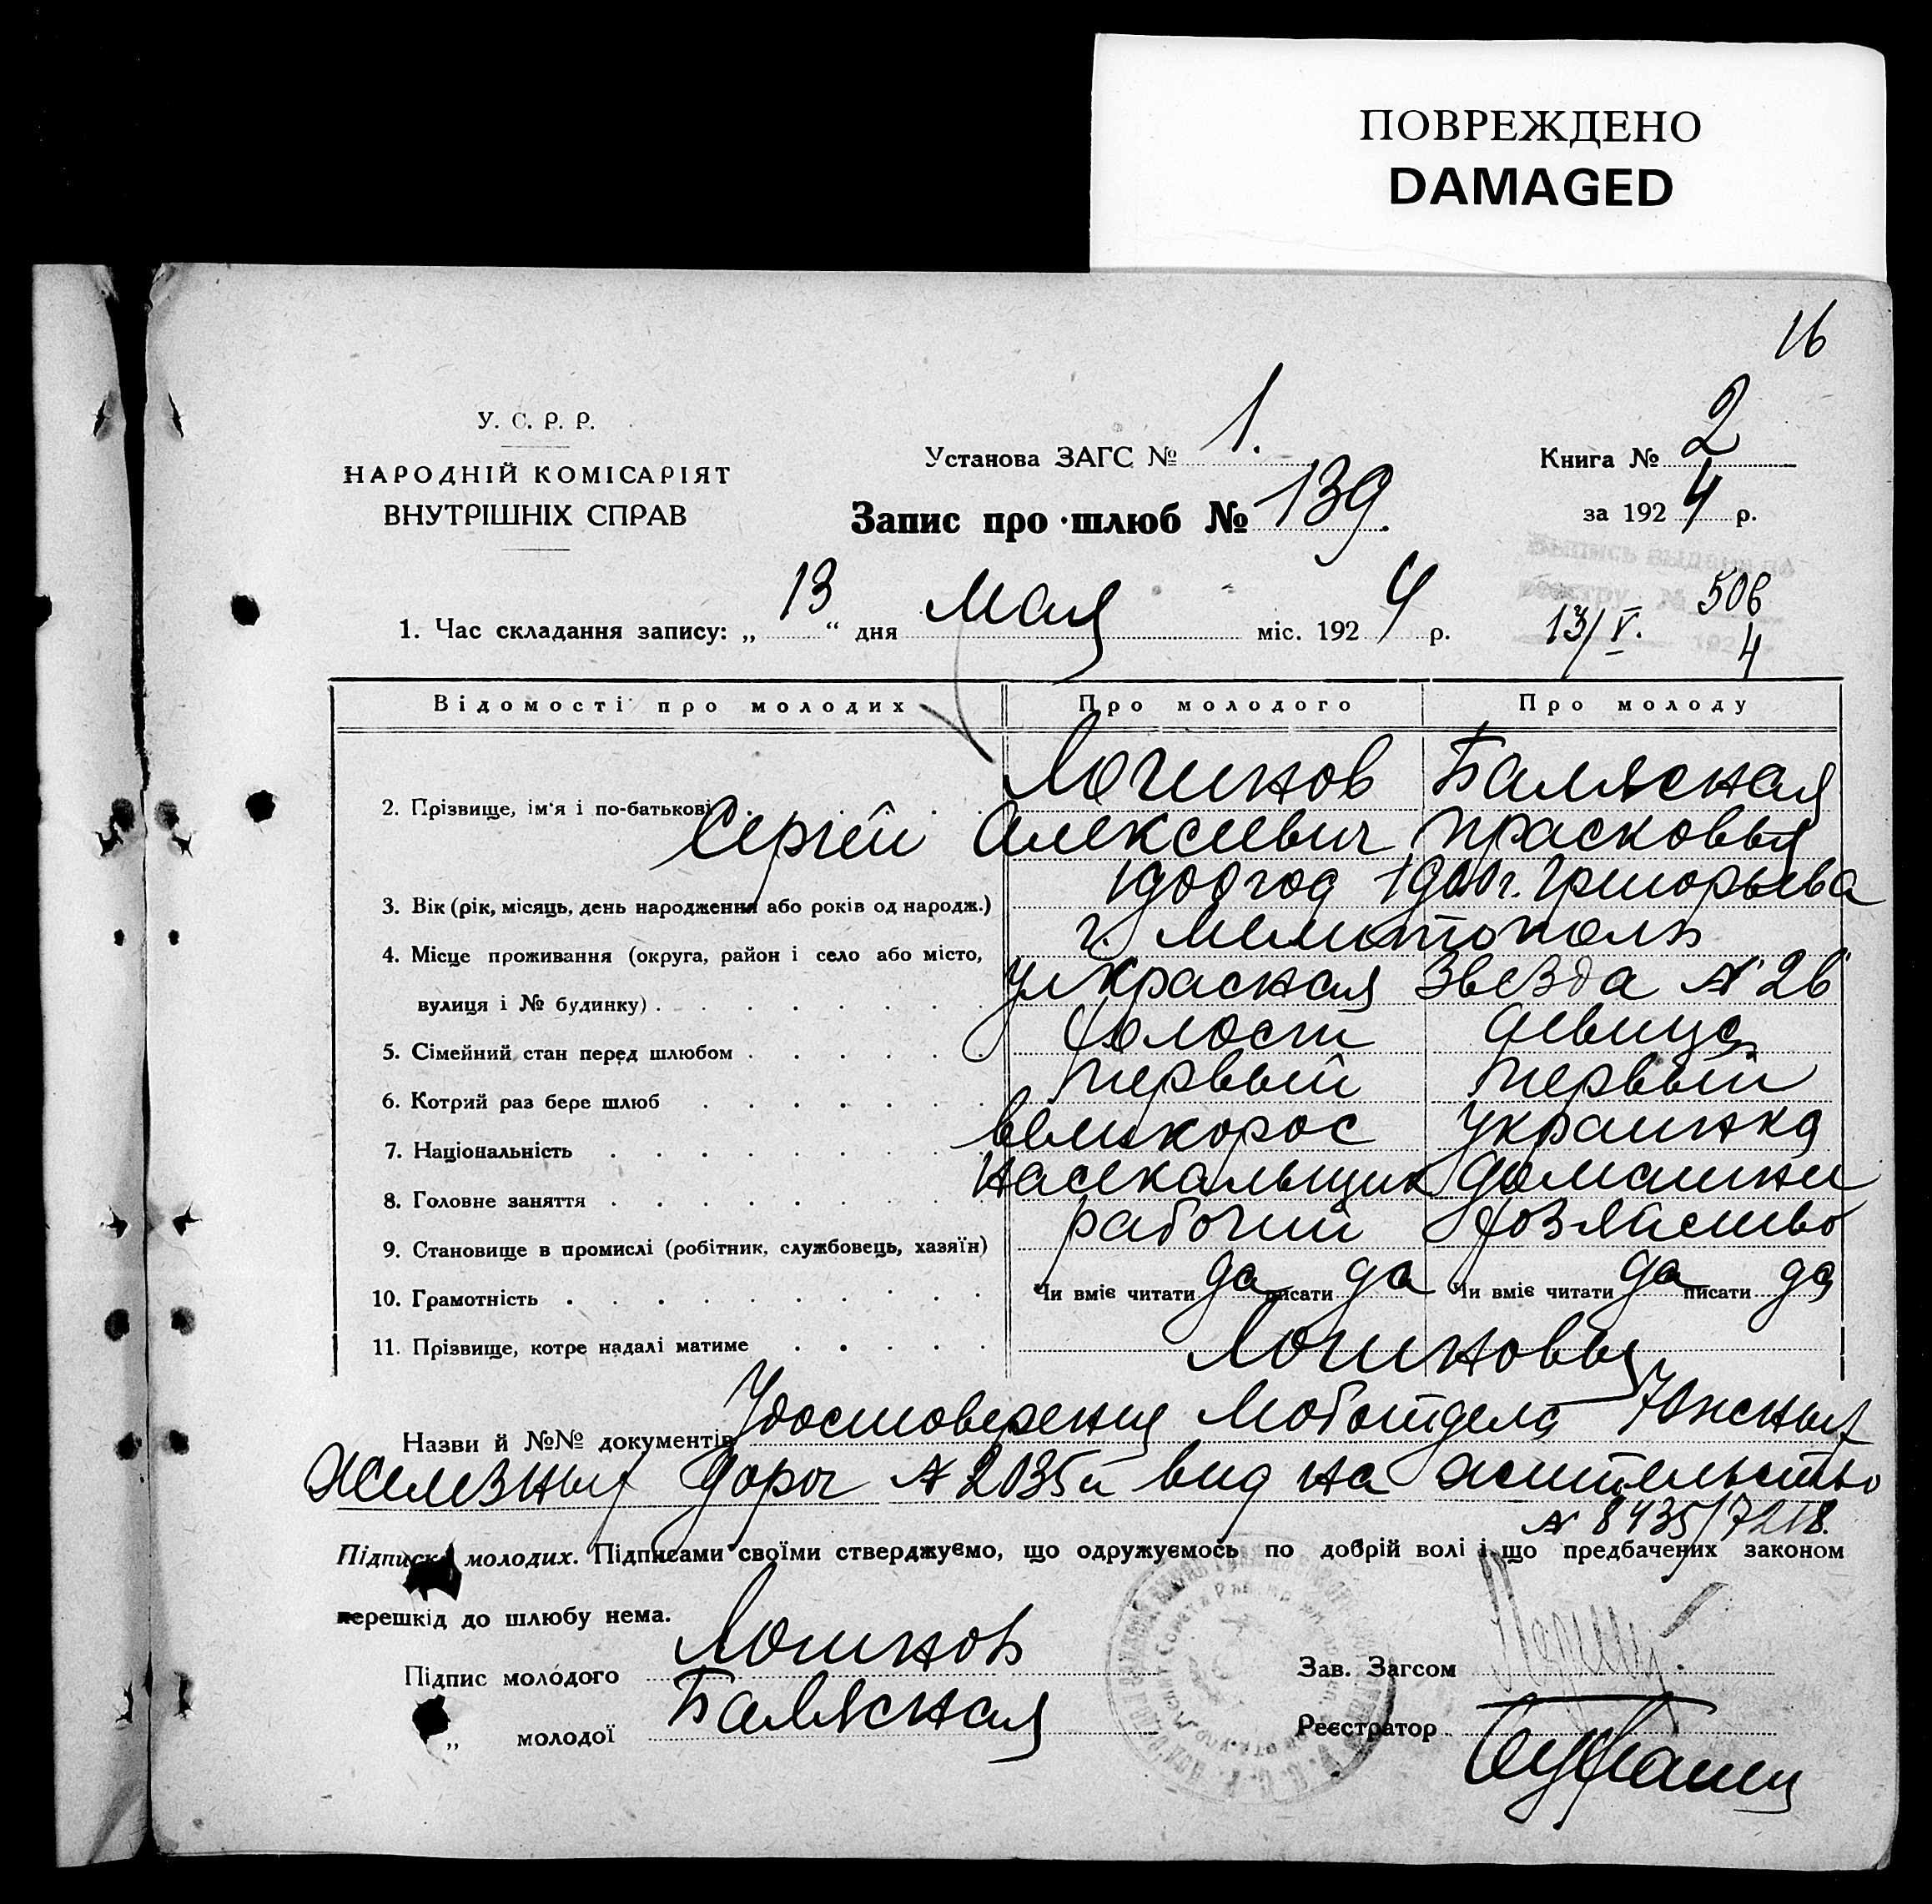 ПОВРЕЖДЕНО
DAMAGED
16
У. С. Р. Р.
НАРОДНІЙ КОМІСАРІЯТ
ВНУТРІШНІХ СПРАВ
Установа ЗАГС № 1.
Книга № 2
Запис про шлюб № 139.
за 1924 р.
Выпись выдана по
реестру № 506
13/V. 1924
1. Час складання запису: „13“ дня Мая міс. 1924 р.
Відомості про молодих Про молодого Про молоду
2. Прізвище, ім'я і по-батькові Логинов Балясная
Сергей Алексеевич Прасковья
3. Вік (рік, місяць, день народження або років од народж.) 1900 год 1900 г. Григорьева
4. Місце проживання (округа, район і село або місто, г. Мелитополь
вулиця і № будинку) ул Красная Звезда № 26
5. Сімейний стан перед шлюбом холост девица
6. Котрий раз бере шлюб первый первый
7. Національність великорос украинка
8. Головне заняття насекальщик домашнее
9. Становище в промислі (робітник, службовець, хазяїн) рабочий хозяйство
10. Грамотність Чи вміє читати да писати да Чи вміє читати да писати да
11. Прізвище, котре надалі матиме Логиновы
Назви й №№ документів Удостоверения Моботдела Южных
Железных дорог № 2035 и вид на жительство
№ 8435/7218.
Підписка молодих. Підписами своїми стверджуємо, що одружуємось по добрій волі і що предбачених законом
перешкід до шлюбу нема.
Підпис молодого Логинов
Зав. Загсом
„ молодої Балясная
Реєстратор